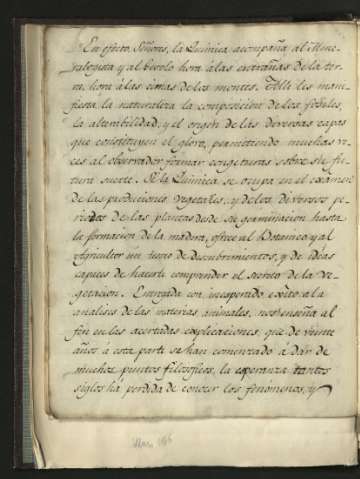 En efecto, Señores, la Quimica acompaña al Mine-
ralogista y al
hora á las entrañas de la tier-
ra, hora á las cimas de los montes. Alli les mani-
fiesta la naturaleza la composicion de los fosiles,
la alterabilidad, y el origen de las diversas capas
que constituyen el globo, permitiendo muchas ve-
ces al observador formar congeturas sobre su fu-
tura suerte. Si la Quimica se ocupa en el examen
de las producciones vegetales, y de los diversos pe-
riodos de las plantas desde su germinacion hasta
la formacion de la madera, ofrece al Botanico y al
Agricultor un tesoro de descubrimientos, y de ideas
capaces de hacerle comprender el secreto de la ve-
getacion. Entregada con inesperado exito a la
analisis de las materias animales, nos enseña al
fin en las acertadas explicaciones, que de veinte
años á esta parte se han comenzado á dár de
muchos puntos filosoficos, la esperanza tantos
siglos há perdida de conocer los fenómenos, y